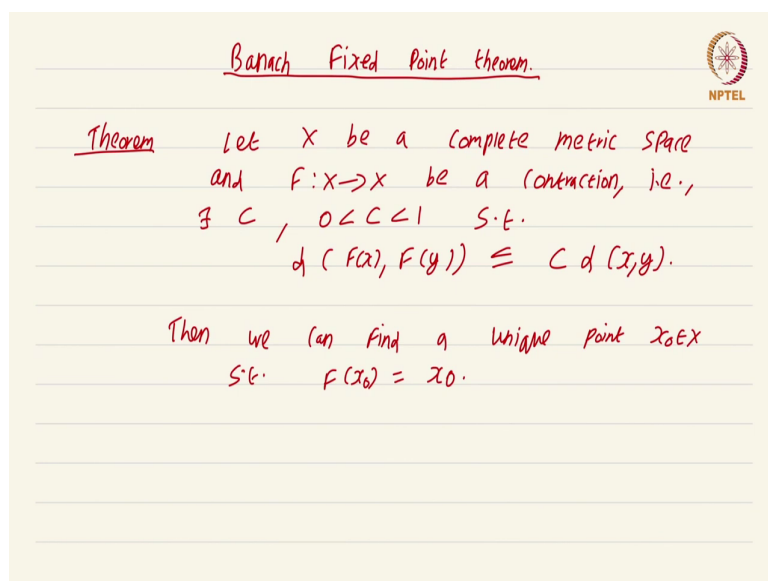 Banach Fixed Point theorem.
NPTEL
Theorem Let X be a complete metric space
and F:X→X be a contraction, i.e.,
∃ C, 0<C<1 s.t.
d(F(x), F(y)) ≤ C d(x,y).
Then we can find a unique point x₀∈X
s.t. F(x₀) = x₀.